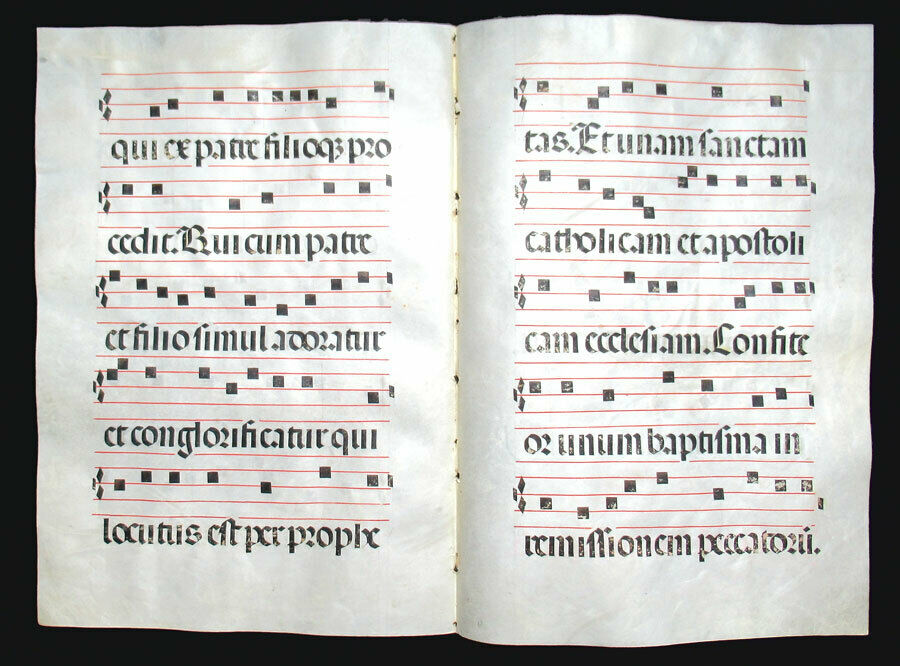 qui ex patre filioqȝ pro
cedit. Qui cum patre
et filio simul adoratur
et conglorificatur qui
locutus est per prophe
tas. Et unam sanctam
catholicam et apostoli
cam ecclesiam. Confite
or unum baptisma in
remissionem peccatorū.